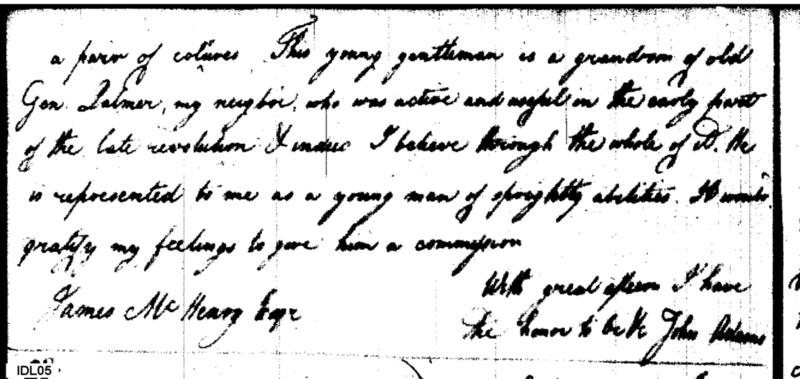 a pair of colours This young gentleman is a grandson of old
Gen. Palmer, my neigbor, who was active and useful in the early part
of the late revolution & indeed I believe through the whole of it. He
is represented to me as a young man of sprightly abilities. It would
gratify my feelings to give him a commission
With great esteem I have
James Mc Henry Esqr
the honor to be &c John Adams
IDL05